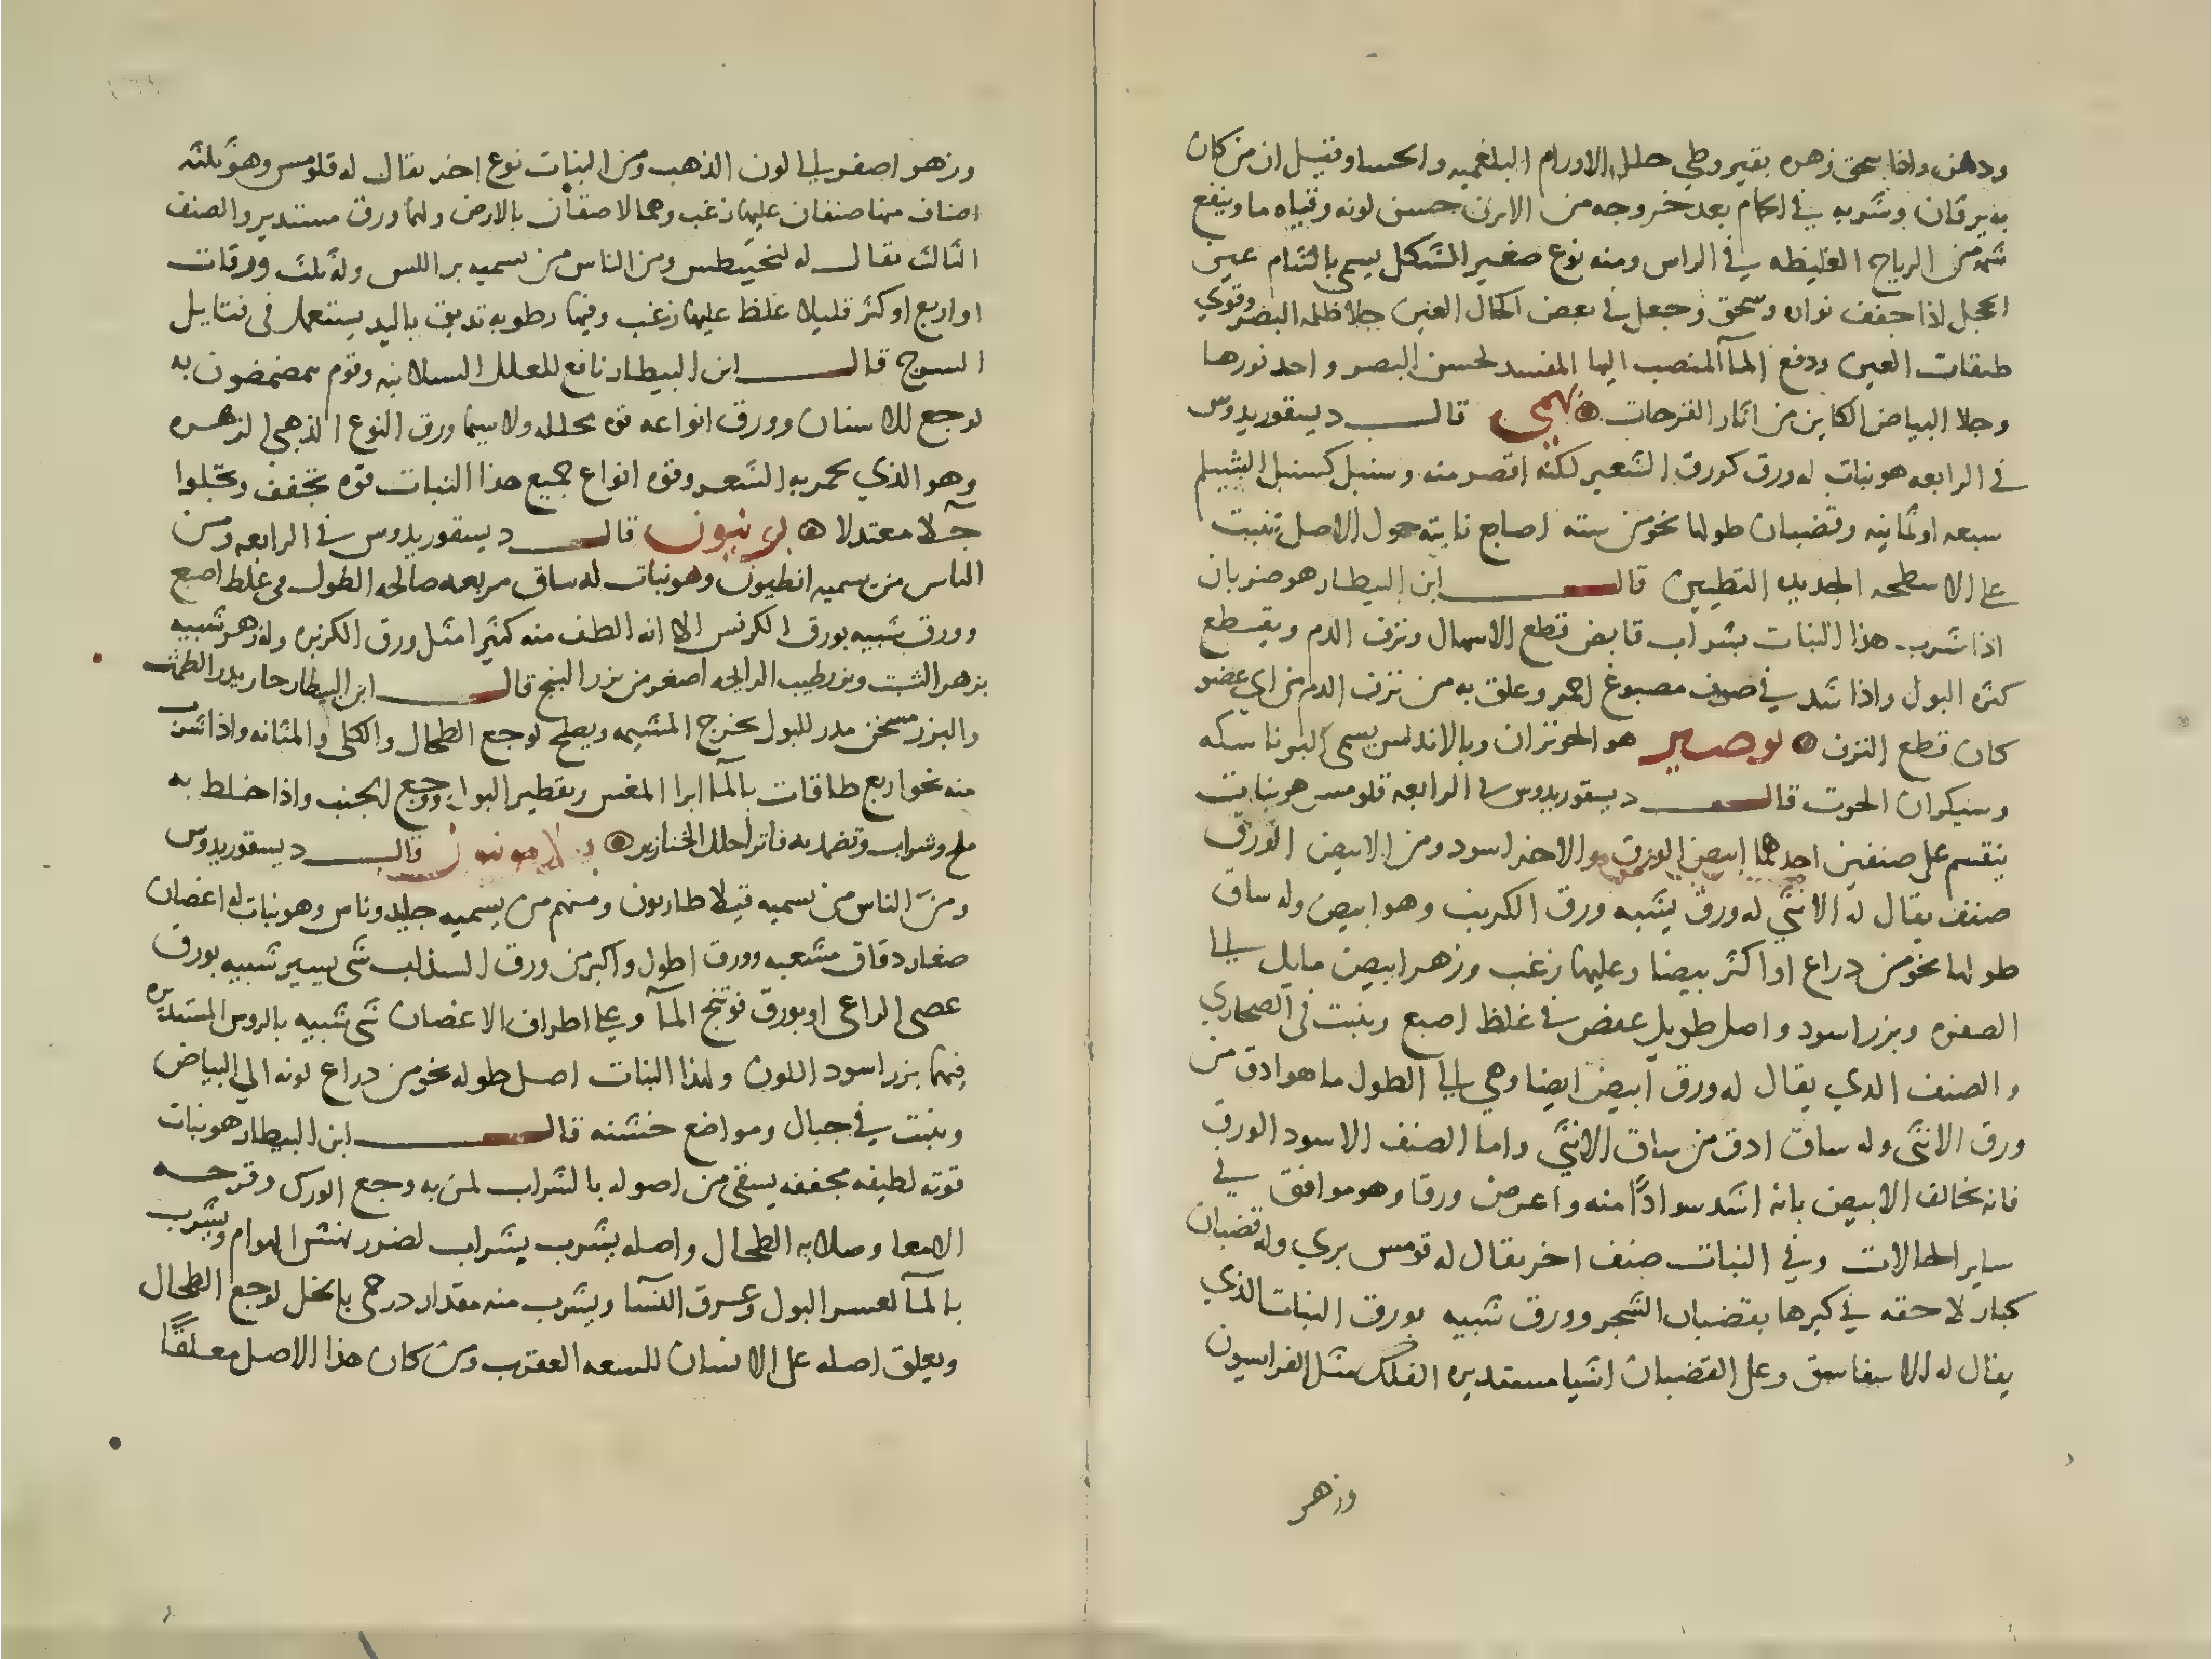 ودهن واذا سحق زهره بقيروطي حلل الاورام البلغميه والحسا وقيل ان من كان
به يرقان وشربه في الحمام بعد خروجه من الابزن حسن لونه ونقاه ما وينفع
شمه من الرياح الغليظه في الراس ومنه نوع صغير الشكل يسمى بالشام عين
الحجل اذا جفف نواره وسحق وجعل في بعض اكحال العين جلا ظلمه البصر وقوي
طبقات العين ودفع المآ المنصب اليها المفسد لحسن البصر واحد نورها
وجلا البياض الكاين من اثار القرحات بهمى قال ديسقوريدوس
في الرابعه هو نبات له ورق كورق الشعير لكنه اقصر منه وسنبل كسنبل الشيلم
سبعه او ثمانيه وقضبان طولها نحو من سته اصابع نابته حول الاصل تنبت
على الاسطحه الجديده التطيين قال ابن البيطار هو ضربان
اذا شرب هذا النبات بشراب قابض قطع الاسهال ونزف الدم ويقطع
كثره البول واذا شد في صوف مصبوغ احمر وعلق به من نزف الدم من اي عضو
كان قطع النزف بوصير هو الخوتران وبالاندلس يسمى البرناسكه
وسيكران الحوت قال ديسقوريدوس في الرابعه قلومس هو نبات
ينقسم على صنفين احدهما ابيض الورق والاخر اسود ومن الابيض الورق
صنف يقال له الانثي له ورق يشبه ورق الكرنب وهو ابيض وله ساق
طولها نحو من دراع او اكثر بيضا وعليها زغب وزهر ابيض مايل الى
الصفره وبزر اسود واصل طويل عفص في غلظ اصبع وينبت في الصحاري
والصنف الدي يقال له ورق ابيض ايضا وهي الى الطول ما هو ادق من
ورق الانثى وله ساق ادق من ساق الانثي واما الصنف الاسود الورق
فانه يخالف الابيض بانه اشد سوادًا منه واعرض ورقا وهو موافق في
ساير الحالات وفي النبات صنف اخر يقال له قومس بري وله قضبان
كبار لاحقه في كبرها بقضبان الشجر وورق شبيه بورق النبات الذي
يقال له الاسفاسق وعلى القضبان اشيا مستديره الفلك مثل الفراسيون
وزهر
وزهر اصفر الى لون الذهب ومن النبات نوع اخر يقال له قلومس وهو ثلثه
اصناف منها صنفان عليهما زغب وهما لاصقان بالارض ولهما ورق مستدير والصنف
الثالث يقال له لنخييطس ومن الناس من يسميه براللس وله ثلث ورقات
او اربع او كثر قليلا غلظ عليها زغب وفيها رطوبه تدبق باليد يستعمل في فتايل
السرج قال ابن البيطار نافع للعلل السيلانيه وقوم يمضمضون به
لوجع للاسنان وورق انواعه قوه محلله ولا سيما ورق النوع الذهبي الزهره
وهو الذي يحمر به الشعر وقوه انواع جميع هذا النبات قوه تجفف وتجلوا
جلآ معتدلا قال ديسقوريدوس في الرابعه ومن
الناس من يسميه انطيون وهو نبات له ساق مربعه صالحه الطول في غلظ اصبع
وورق شبيه بورق الكرفس الا انه الطف منه كثيرا مثل ورق الكزبره وله زهر شبيه
بزهر الشبت وبزر طيب الرايحه اصغر من بزر البنج قال ابن البيطار حار يدر الطمث
والبزر مسخن مدر للبول يخرج المشيمه ويصلح لوجع الطحال والكلى والمثانه واذا شرب
منه نحو اربع طاقات بالمآ ابرا المغس وتقطير البول ووجع الجنب واذا خلط به
ملح وشراب وتضمد به فاترا حلل الخنازير بلامونيون قال ديسقوريدوس
ومن الناس من يسميه فيلاطاريون ومنهم من يسميه جليدوناس وهو نبات له اغصان
صغار دقاق مشعبه وورق اطول واكبر من ورق السذاب شى يسير شبيه بورق
عصى الراعى او بورق فوتنج المآ وعلى اطراف الاغصان شى شبيه بالروس المستديره
فيها بزر اسود اللون ولهذا النبات اصل طوله نحو من دراع لونه الي البياض
وينبت في جبال ومواضع خشنه قال ابن البيطار هو نبات
قوته لطيفه مجففه يسقى من اصوله بالشراب لمن به وجع الورك وقرحه
الامعا وصلابه الطحال واصله يشرب بشراب لضرر نهش الهوام ويشرب
بالمآ لعسر البول وعرق النسآ ويشرب منه مقدار درخمى بالخل لوجع الطحال
ويعلق اصله على الانسان للسعه العقرب ومن كان هذا الاصل معلقًا